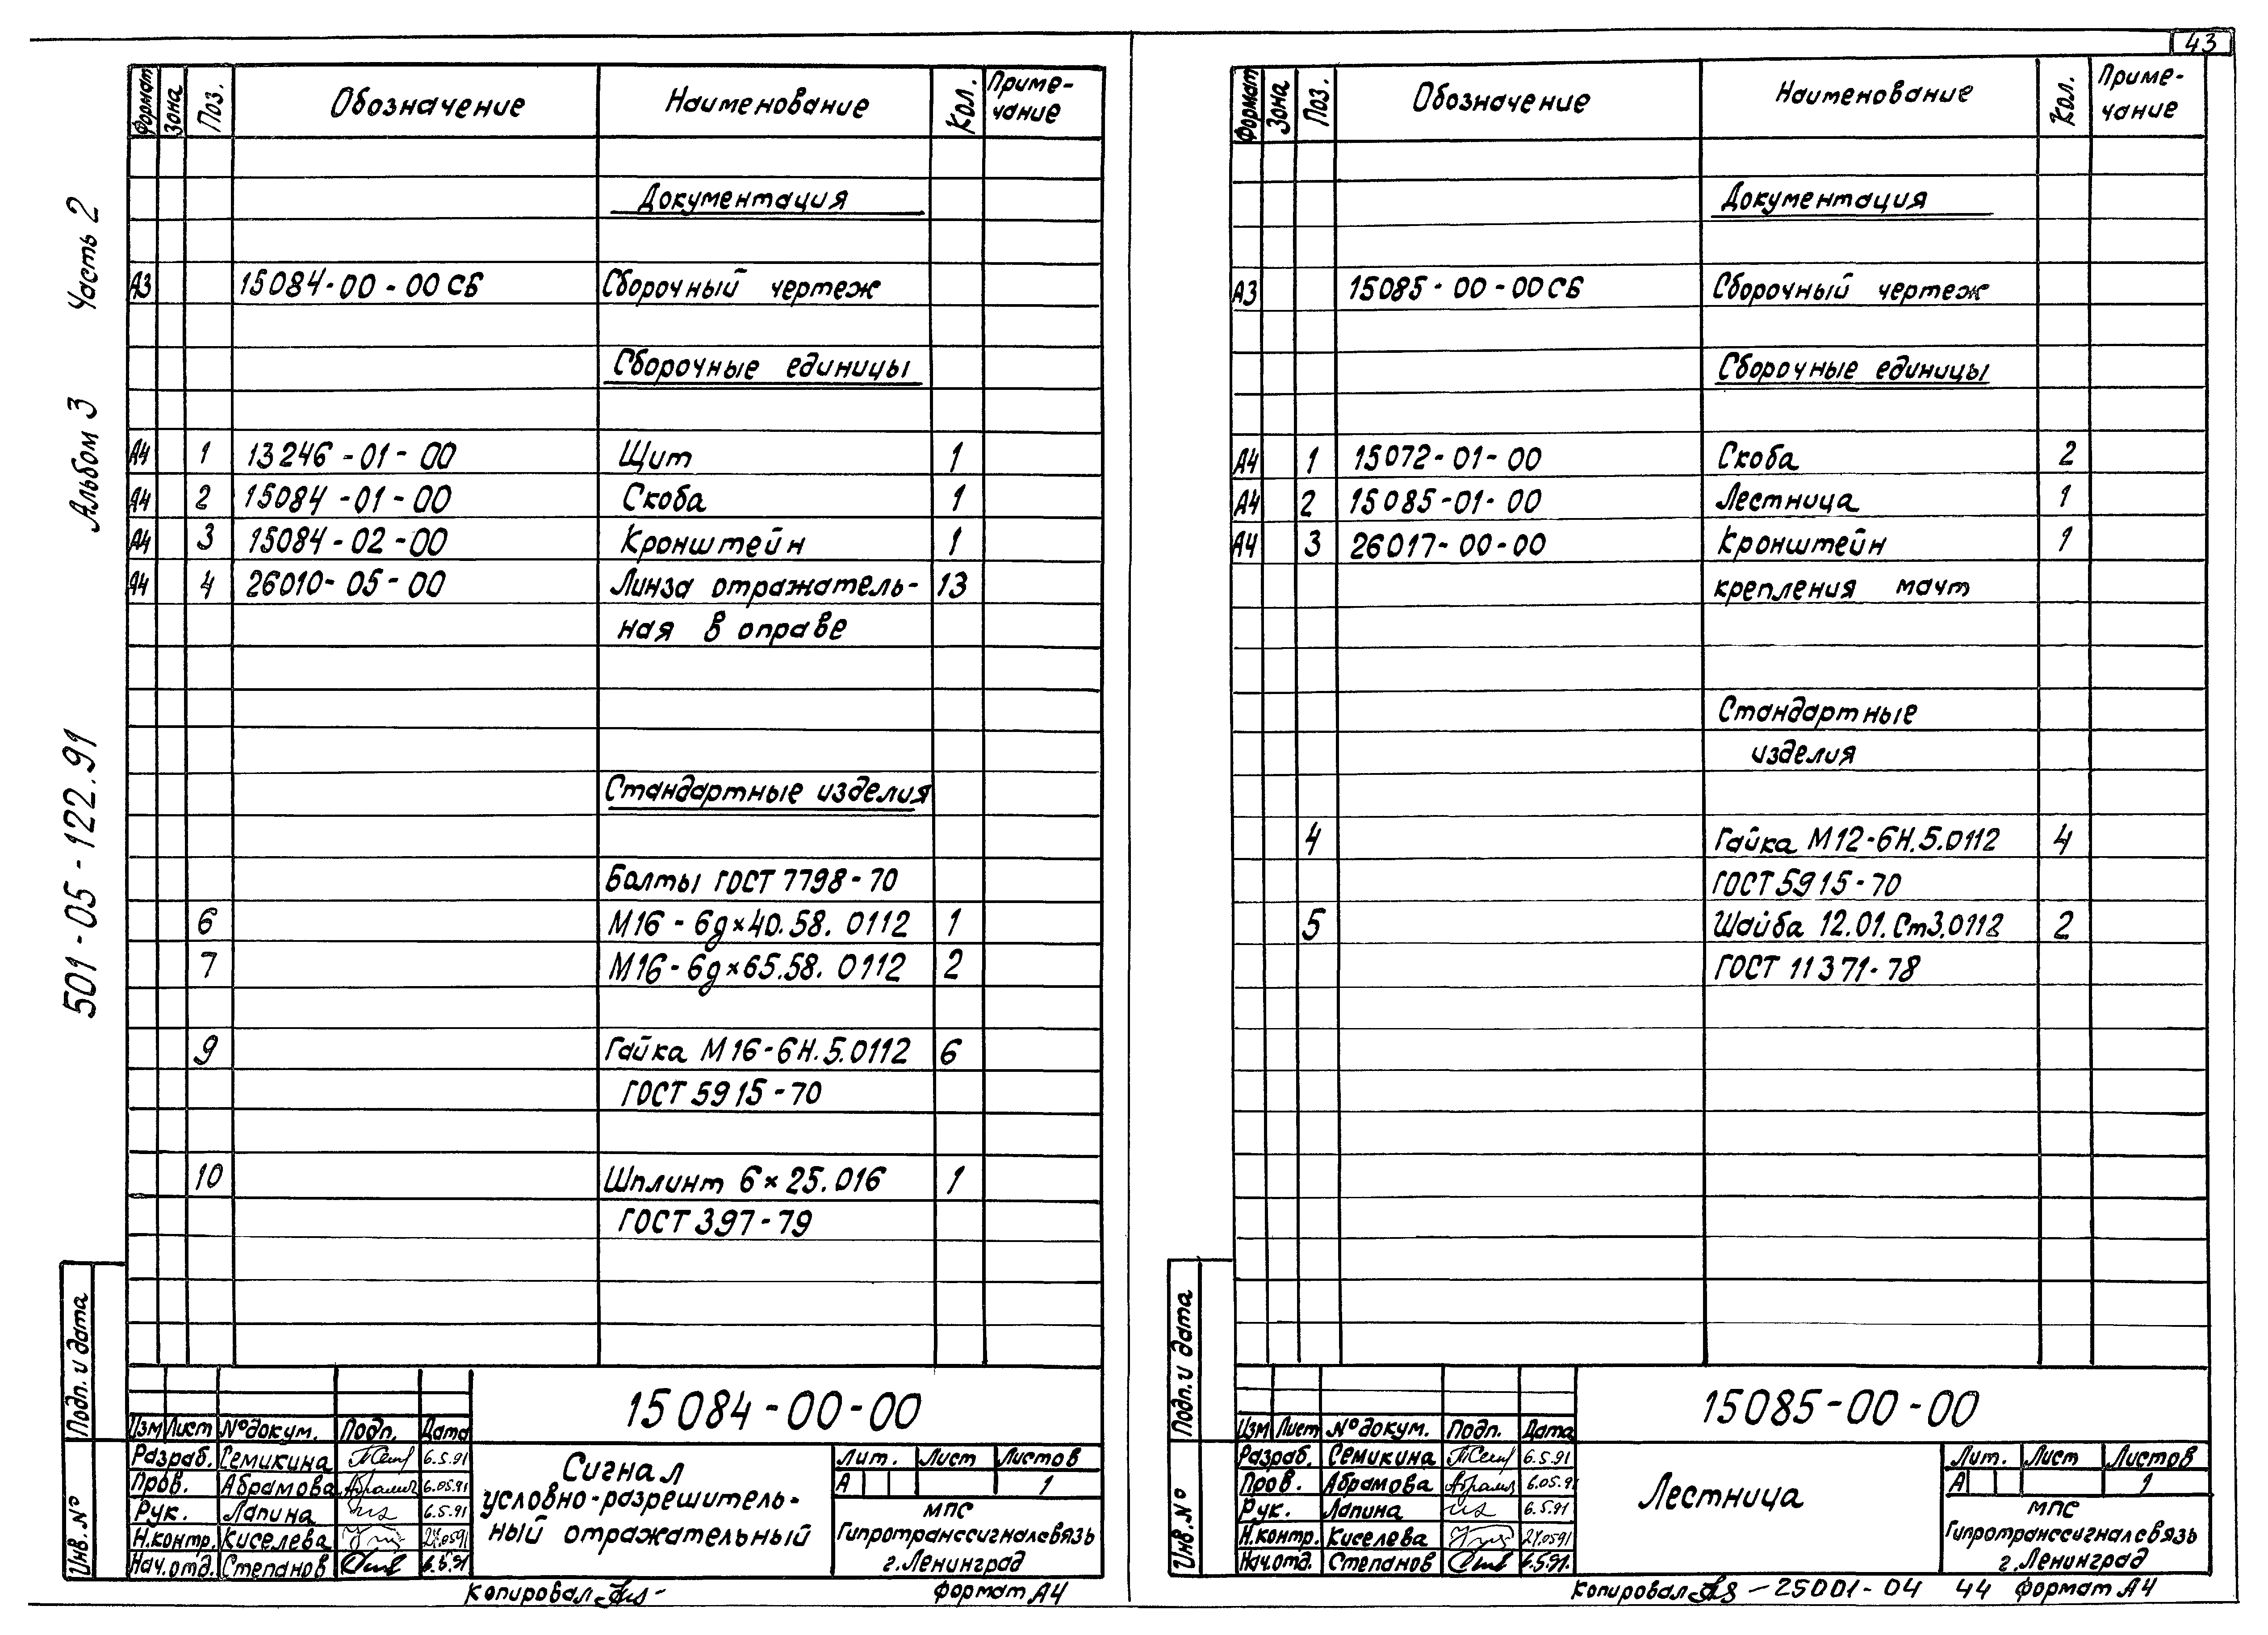 43
501-05-122.91
Альбом 3
Часть 2
Формат Зона Поз. Обозначение Наименование Кол. Приме-
чание
Документация
А3 15084-00-00СБ Сборочный чертеж
Сборочные единицы
А4 1 13246-01-00 Щит 1
А4 2 15084-01-00 Скоба 1
А4 3 15084-02-00 Кронштейн 1
А4 4 26010-05-00 Линза отражатель- 13
ная в оправе
Стандартные изделия
Болты ГОСТ 7798-70
6 М16-6g×40.58.0112 1
7 М16-6g×65.58.0112 2
9 Гайка М16-6Н.5.0112 6
ГОСТ 5915-70
10 Шплинт 6×25.016 1
ГОСТ 397-79
Подп. и дата
Инв. №
15084-00-00
Изм Лист № докум. Подп. Дата
Разраб. Семикина 6.5.91
Пров. Абрамова 6.05.91
Рук. Лапина 6.5.91
Н.контр. Киселева
Нач.отд. Степанов 6.5.91
Сигнал
условно-разрешитель-
ный отражательный
Лит. Лист Листов
А 1
МПС
Гипротранссигналсвязь
г.Ленинград
Копировал
Формат А4
Формат Зона Поз. Обозначение Наименование Кол. Приме-
чание
Документация
А3 15085-00-00СБ Сборочный чертеж
Сборочные единицы
А4 1 15072-01-00 Скоба 2
А4 2 15085-01-00 Лестница 1
А4 3 26017-00-00 Кронштейн 1
крепления мачт
Стандартные
изделия
4 Гайка М12-6Н.5.0112 4
ГОСТ 5915-70
5 Шайба 12.01.Ст3.0112 2
ГОСТ 11371-78
Подп. и дата
Инв. №
15085-00-00
Изм Лист № докум. Подп. Дата
Разраб. Семикина 6.5.91
Пров. Абрамова 6.05.91
Рук. Лапина 6.5.91
Н.контр. Киселева
Нач.отд. Степанов 6.5.91.
Лестница
Лит. Лист Листов
А 1
МПС
Гипротранссигналсвязь
г.Ленинград
Копировал 25001-04 44 Формат А4